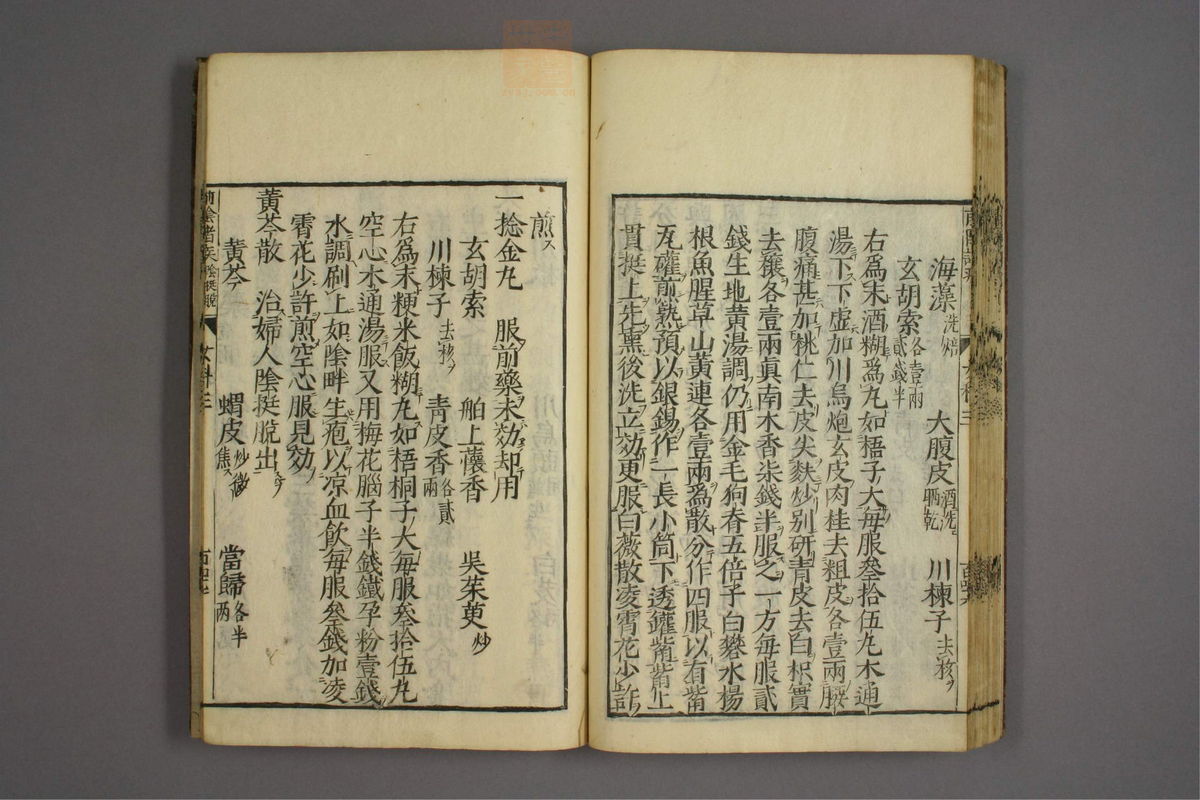 海藻洗焙 大腹皮酒洗晒乾 川楝子去核ヲ
玄胡索各壹兩貳錢半
右爲末酒糊爲丸如梧子大每服叄拾伍丸木通
湯下下虛加川烏炮玄皮肉桂去粗皮各壹兩腰
腹痛甚加桃仁去皮尖麩炒別研青皮去白枳實
去穰各壹兩眞南木香柒錢半服之一方每服貳
錢生地黄湯調仍用金毛狗脊五倍子白礬水楊
根魚腥草山黄連各壹兩爲散分作四服以有觜
瓦鑵煎熟預以銀錫作一長小筒下透鑵觜觜上
貫挺上先熏後洗立効更服白薇散凌霄花少許
煎ス
一捻金丸 服前藥未効却用
玄胡索 舶上蘹香 吳茱萸炒
川楝子去核ヲ 青皮香各貳兩
右爲末粳米飯糊丸如梧桐子大每服叄拾伍丸
空心木通湯服又用梅花腦子半錢鐵孕粉壹錢
水調刷上如陰畔生疱以凉血飲每服叄錢加凌
霄花少許煎空心服見効
黄芩散 治婦人陰挺脫出
黄芩 蝟皮炒焦ス 當歸各半兩